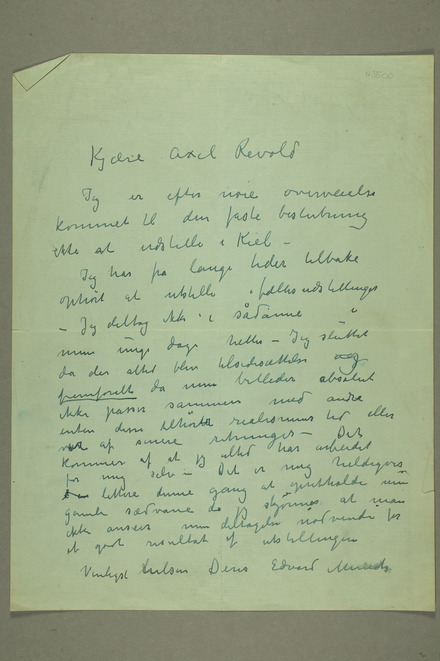 N 3500
Kjære Axel Revold
Jeg er efter nøie overveielse
kommet til den faste beslutning
ikke at udstille i Kiel –
Jeg har fra lange tider tilbake
ophørt at utstille i fællesudstillinger
– Jeg deltog ikke i sådanne i
mine unge dage heller – Jeg sluttet
da der altid blev tilsidesættelse og
fremforalt da mine billeder absolut
ikke passer sammen med andre
enten disse tilhører realismens tid eller
er af senere retninger – Det
kommer af at jeg altid har arbeidet
for mig selv – Det er mig heldigvis
lettere denne gang at opretholde min
gamle sædvane da jeg skjønner at man
ikke anser min deltagelse nødvendig for
et godt resultat af utstillingen
Venligst hilsen Deres Edvard Munch